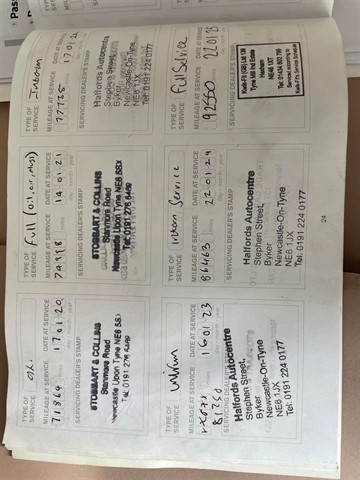 TYPE OF SERVICE oil.
MILEAGE AT SERVICE DATE AT SERVICE
71864 17 01 20
SERVICING DEALER'S STAMP
STOBBART & COLLINS
Stanmore Road
Newcastle Upon Tyne NE6 5SX
TYPE OF SERVICE Full (oil, air,
MILEAGE AT SERVICE DATE AT SERVICE
74918 14 01 21
SERVICING DEALER'S STAMP
STOBBART & COLLINS
Stanmore Road
Newcastle Upon Tyne NE6 5SX
TYPE OF SERVICE Interim
MILEAGE AT SERVICE DATE AT SERVICE
77725 17 01
SERVICING DEALER'S STAMP
Halfords Autocentre
Stephen Street,
Byker
Newcastle-On-Tyne
NE6 1JX
Tel: 0191 224 0177
TYPE OF SERVICE
MILEAGE AT SERVICE DATE AT SERVICE
81250 16 01 23
SERVICING DEALER'S STAMP
Halfords Autocentre
Stephen Street,
Byker
Newcastle-On-Tyne
NE6 1JX
Tel: 0191 224 0177
TYPE OF SERVICE Interim Service
MILEAGE AT SERVICE DATE AT SERVICE
86463 22 01 24
SERVICING DEALER'S STAMP
Halfords Autocentre
Stephen Street,
Byker
Newcastle-On-Tyne
NE6 1JX
Tel: 0191 224 0177
TYPE OF SERVICE Full Service
MILEAGE AT SERVICE DATE AT SERVICE
92550 22 01 25
SERVICING DEALER'S STAMP
Kwik-Fit (GB) Ltd
Tyne Mill Ind Estate
Hexham
24